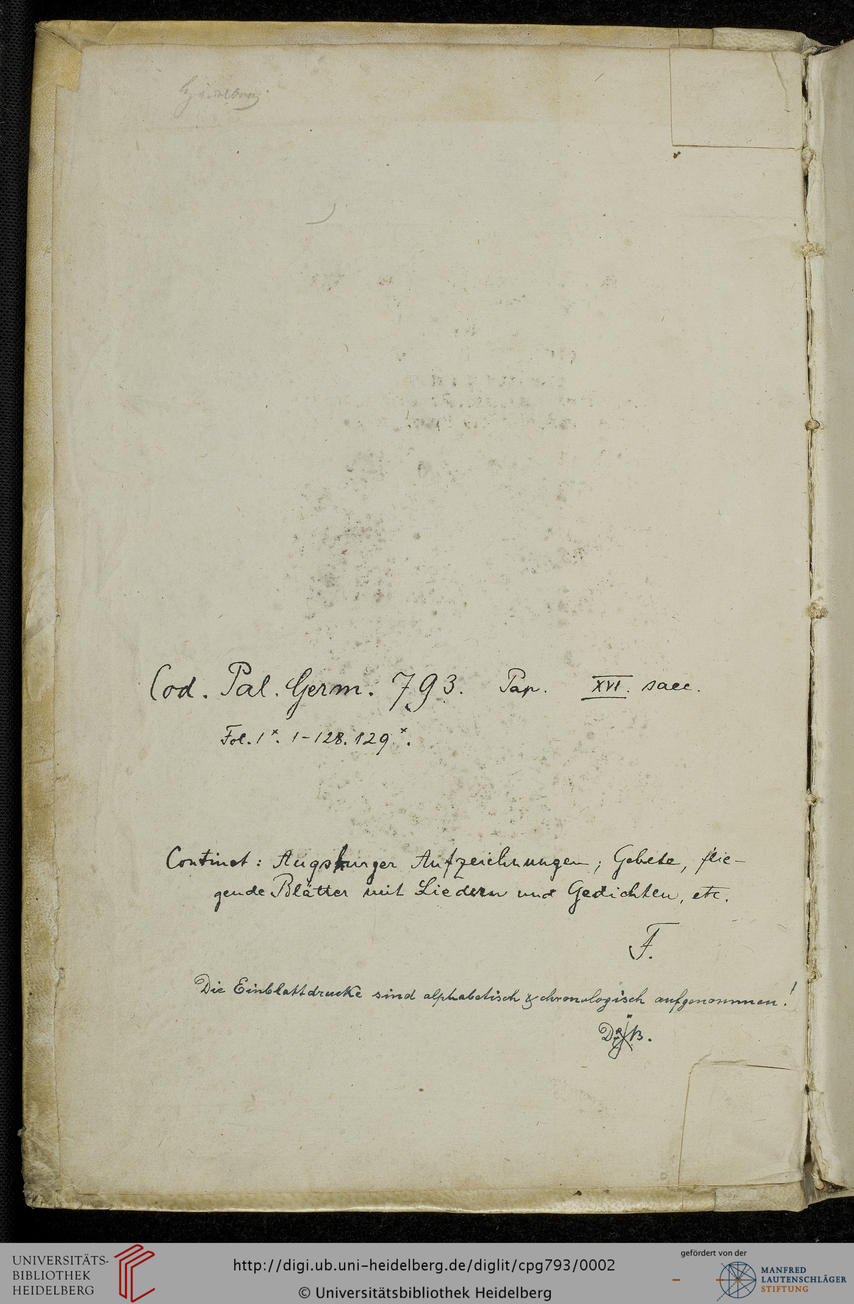 Cod. Pal. Germ. 793. Pap. XVI. saec.
Fol. 1*. 1-128. 129*.
Continet: Augsburger Aufzeichnungen; Gebete, flie-
gende Blätter mit Liedern und Gedichten, etc.
F.
Die Einblattdrucke sind alphabetisch & chronologisch aufgenommen!
UNIVERSITÄTS-
BIBLIOTHEK
HEIDELBERG
http://digi.ub.uni-heidelberg.de/diglit/cpg793/0002
© Universitätsbibliothek Heidelberg
gefördert von der
MANFRED
LAUTENSCHLÄGER
STIFTUNG